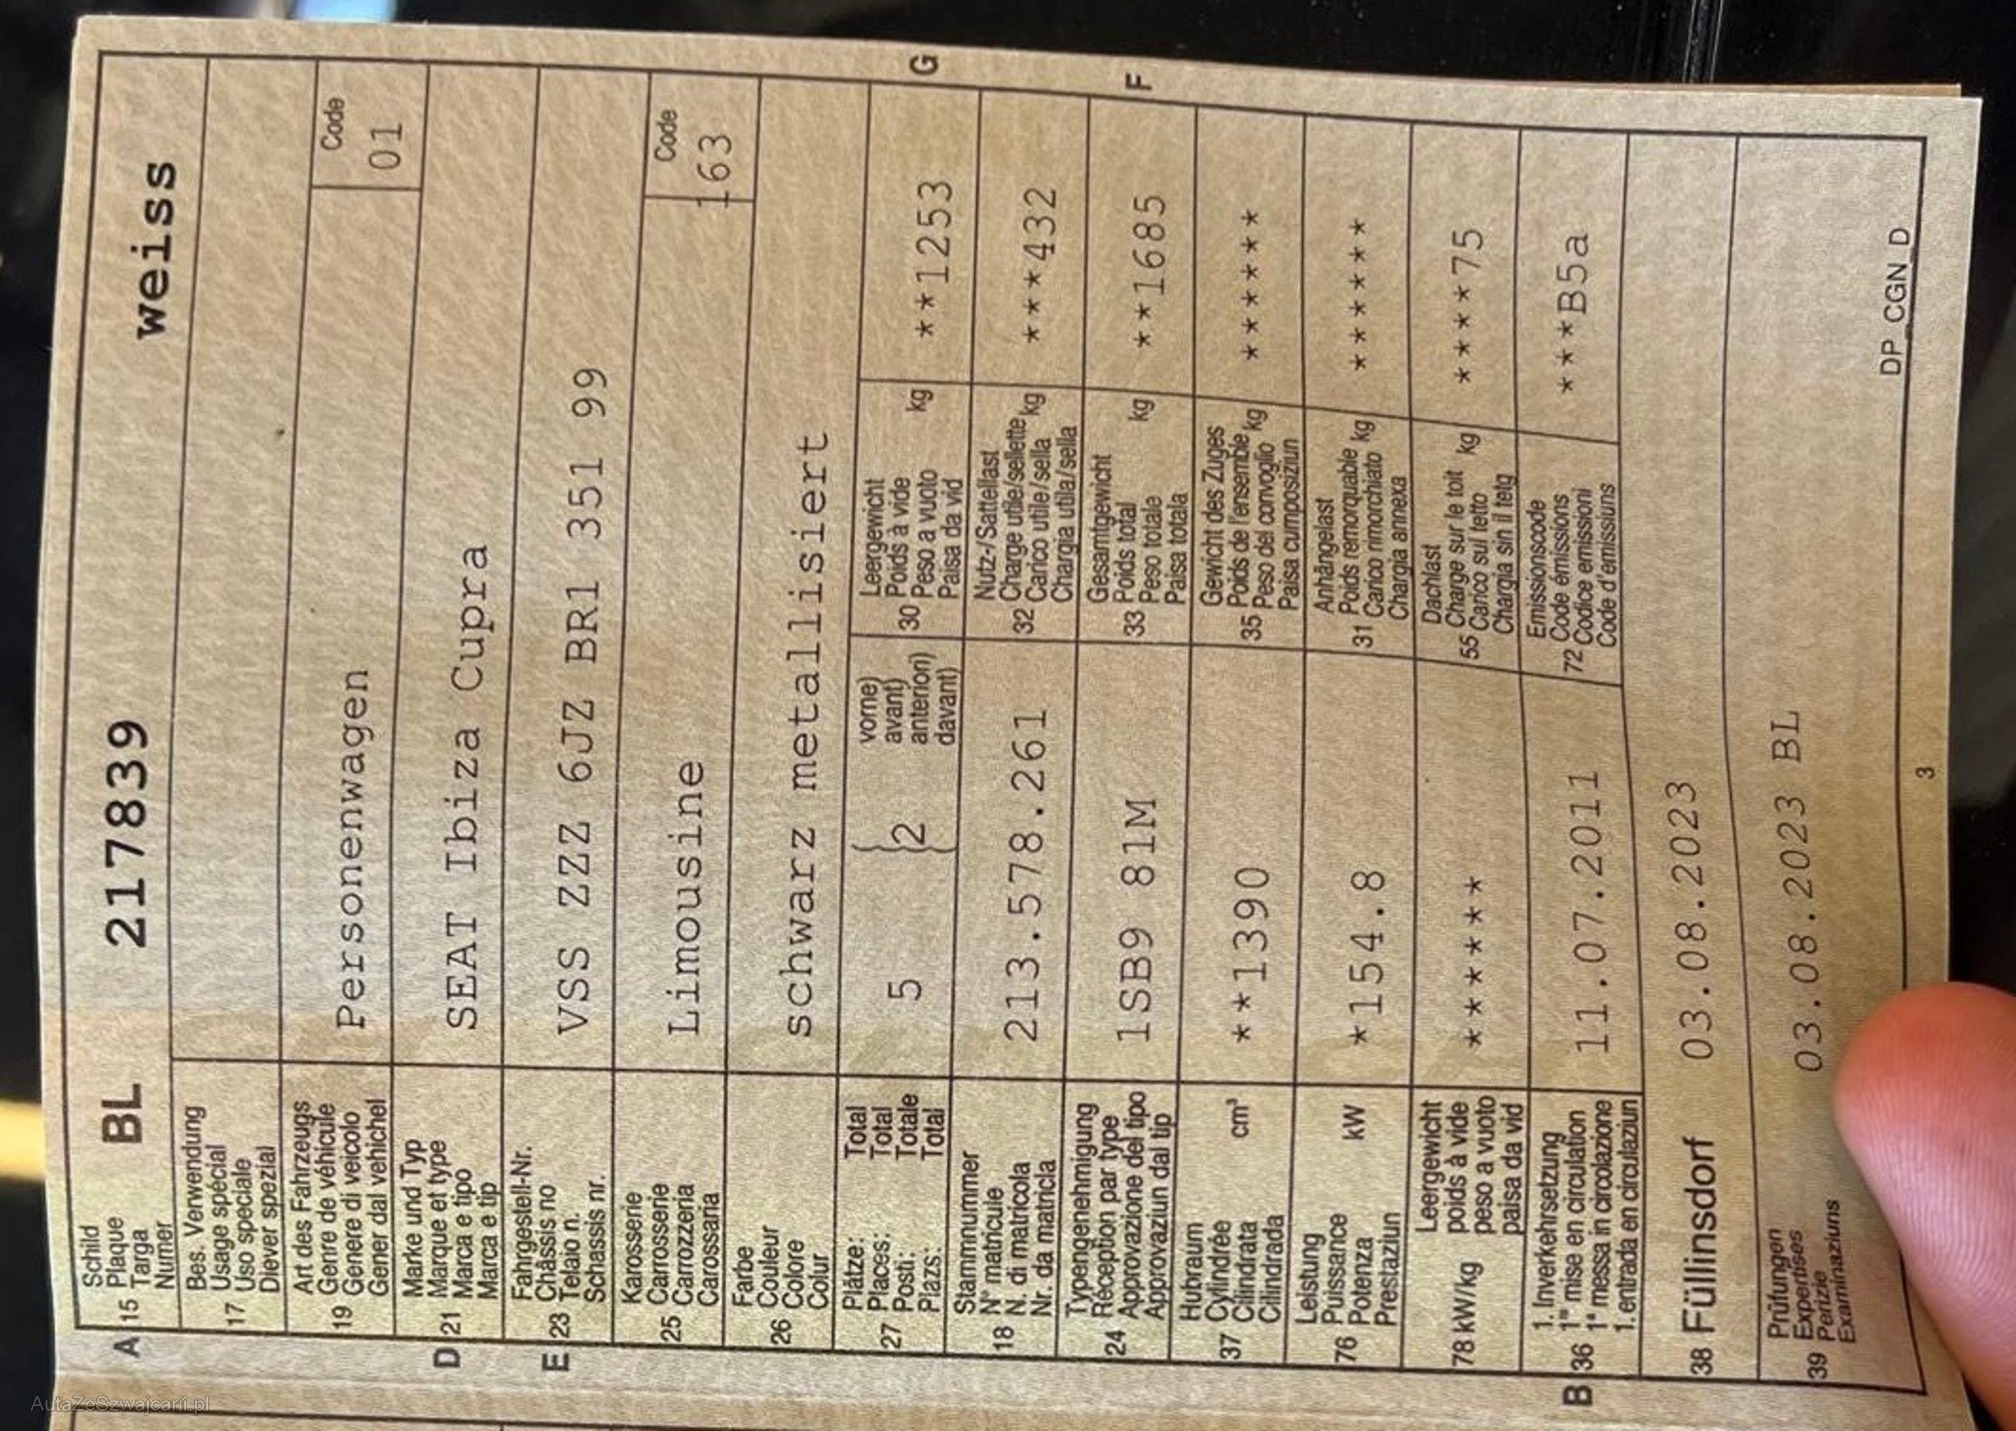 Schild
Plaque
A 15 Targa BL 217839 weiss
Numer
Bes. Verwendung
Usage spécial
17 Uso speciale
Diever spezial
Art des Fahrzeugs Code
Genre de véhicule
19 Genere di veicolo Personenwagen 01
Gener dal vehichel
Marke und Typ
Marque et type
D 21 Marca e tipo SEAT Ibiza Cupra
Marca e tip
Fahrgestell-Nr.
Châssis no
E 23 Telaio n. VSS ZZZ 6JZ BR1 351 99
Schassis nr.
Karosserie Code
Carrosserie
25 Carrozzeria Limousine 163
Carossaria
Farbe
Couleur
26 Colore schwarz metallisiert
Colur
Plätze: Total vorne) Leergewicht
Places: Total avant) Poids à vide
27 Posti: Totale 5 {2 anteriori) 30 Peso a vuoto kg **1253 G
Plazs: Total davant) Paisa da vid
Stammnummer Nutz-/Sattellast
N° matricule Charge utile/sellette
18 N. di matricola 213.578.261 32 Carico utile/sella kg ***432
Nr. da matricla Chargia utila/sella
Typengenehmigung Gesamtgewicht
Réception par type Poids total
24 Approvazione del tipo 1SB9 81M 33 Peso totale kg **1685 F
Approvaziun dal tip Paisa totala
Hubraum Gewicht des Zuges
Cylindrée Poids de l'ensemble
37 Cilindrata cm³ **1390 35 Peso del convoglio kg ******
Cilindrada Paisa cumposiziun
Leistung Anhängelast
Puissance Poids remorquable
76 Potenza kW *154.8 31 Carico rimorchiato kg ******
Prestaziun Chargia annexa
Leergewicht Dachlast
poids à vide Charge sur le toit
78 kW/kg peso a vuoto ****** 55 Carico sul tetto kg ****75
paisa da vid Chargia sin il tetg
1. Inverkehrsetzung Emissionscode
1re mise en circulation Code émissions
B 36 1a messa in circolazione 11.07.2011 72 Codice emissioni ***B5a
1. entrada en circulaziun Code d'emissiuns
38 Füllinsdorf 03.08.2023
Prüfungen
Expertises
39 Perizie 03.08.2023 BL
Examinaziuns
DP_CGN_D
3
AutaZeSzwajcarii.pl